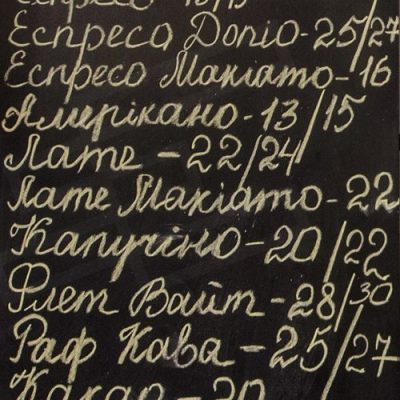 Еспресо
Еспресо Допіо-25/27
Еспресо Макіато-16
Амерікано-13/15
Лате-22/24
Лате Макіато-22
Капучіно-20/22
Флет Вайт-28/30
Раф Кава-25/27
Какао-20